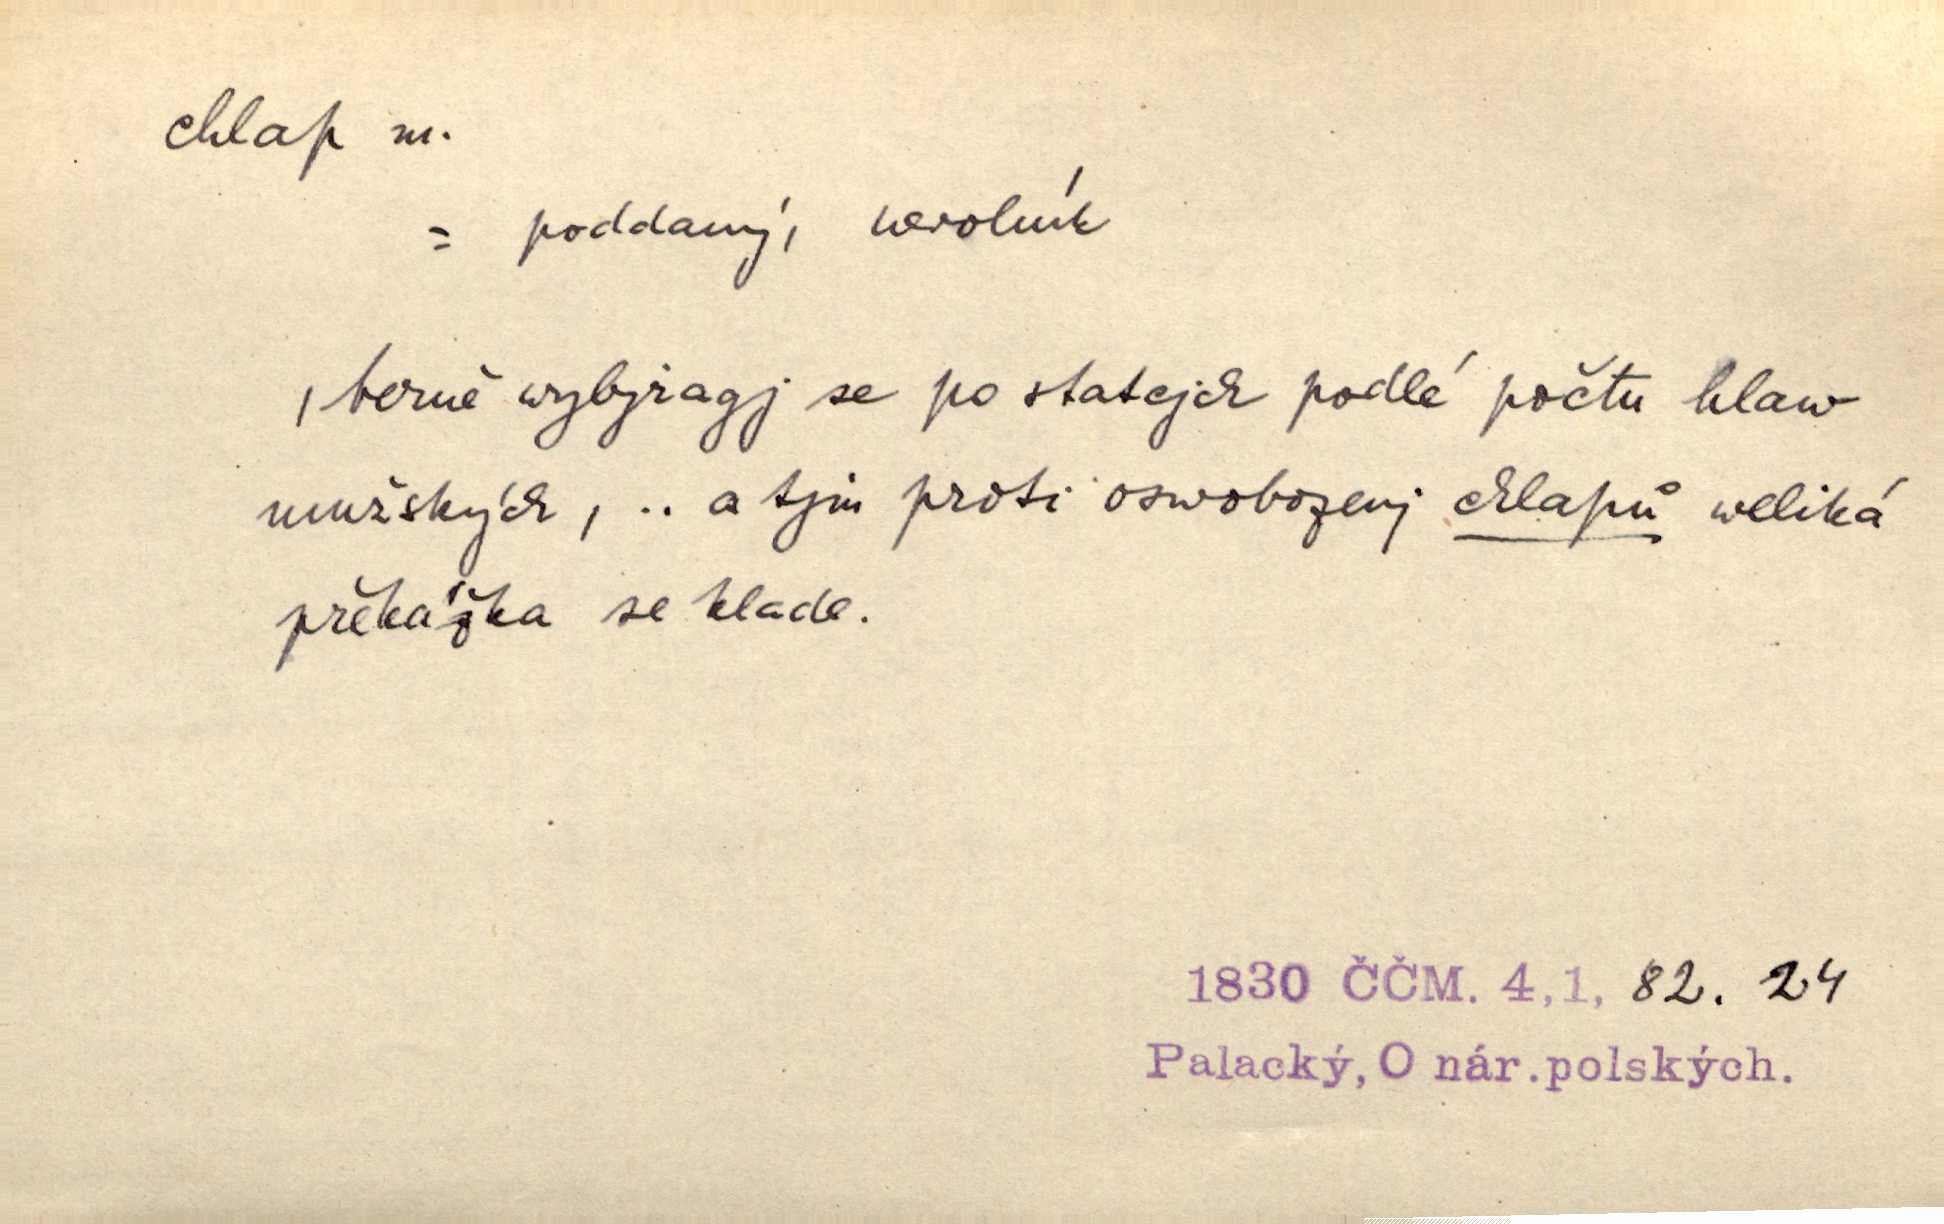 chlap m.
= poddaný, nevolník
, berně wybjragj se po statcjch podlé počtu hlaw
mužských, .. a tjm proti oswobozenj chlapů weliká
překážka se klade.
1830 ČČM. 4,1, 82. 24
Palacký, O nár.polských.